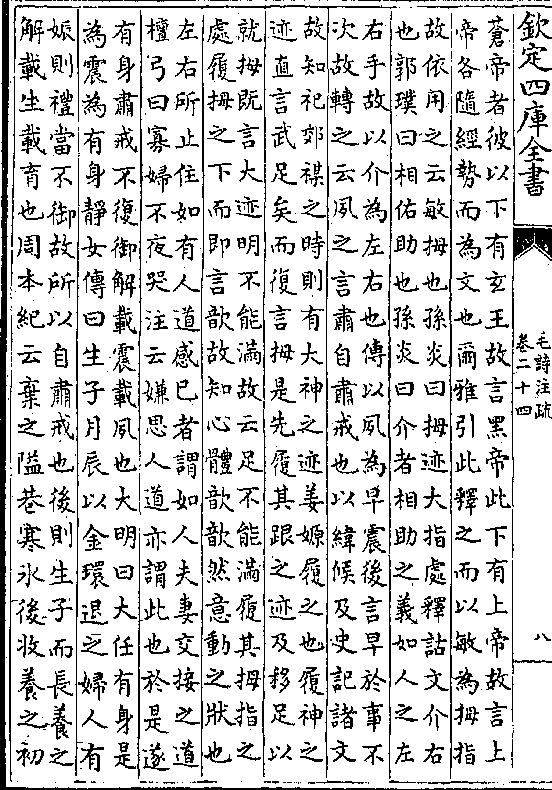 欽定四庫全書
毛詩注疏
卷二十四
八
蒼帝者彼以下有玄王故言黑帝此下有上帝故言上
帝各隨經勢而為文也爾雅引此釋之而以敏為拇指
故依用之云敏拇也孫炎曰拇迹大指處釋詁文介右
也郭璞曰相佑助也孫炎曰介者相助之義如人之左
右手故以介為左右也傳以夙為早震後言早於事不
次故轉之云夙之言肅自肅戒也以緯候及史記諸文
故知祀郊禖之時則有大神之迹姜嫄履之也履神之
迹直言武足矣而復言拇是先履其跟之迹及移足以
就拇既言大迹明不能滿故云足不能滿履其拇指之
處履拇之下而即言歆故知心體歆歆然意動之狀也
左右所止住如有人道感已者謂如人夫妻交接之道
檀弓曰寡婦不夜哭注云嫌思人道亦謂此也於是遂
有身肅戒不復御解載震載夙也大明曰大任有身是
為震為有身靜女傳曰生子月辰以金環退之婦人有
娠則禮當不御故所以自肅戒也後則生子而長養之
解載生載育也周本紀云棄之隘巷寒氷後收養之初